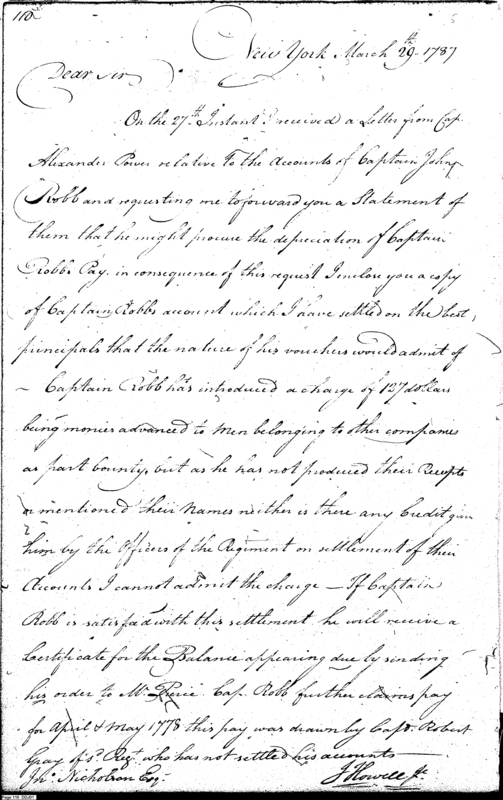 110
New York March 29th 1787
Dear Sir
On the 27th Instant I received a Letter from Cap.
Alexander Power relative to the Accounts of Captain John
Robb and requesting me to forward you a Statement of
them that he might procure the depreciation of Captain
Robbs Pay. in consequence of this request I inclose you a copy
of Captain Robbs account which I have settled on the best
principals that the nature of his vouchers would admit of
– Captain Robb has introduced a charge of 127 dollars
being monies advanced to men belonging to other companies
as part bounty, but as he has not produced their Receipts
or mentioned their Names neither is there any Credit given
him by the Officers of the Regiment on settlement of their
Accounts I cannot admit the charge — If Captain
Robb is satisfied with this settlement he will receive a
Certificate for the Balance appearing due by sending
his order to Mr. Pierce Cap. Robb further claims pay
for April & May 1778 this pay was drawn by Capt. Robert
Gray of sd. Regt. who has not settled his accounts —
Jno. Nicholson Esqr.
J Howell Jr.